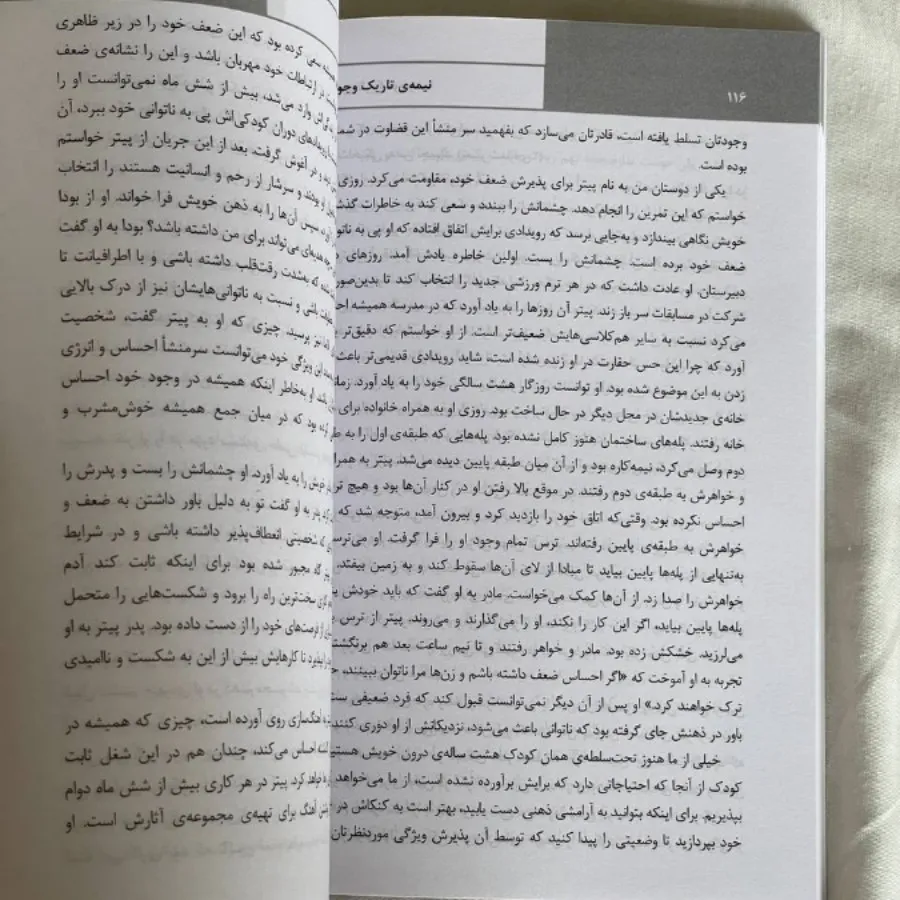 ۱۱۶
نیمه‌ی تاریک وجو
وجودتان تسلط یافته است، قادرتان می‌سازد که بفهمید سر منشأ این قضاوت در شما
بوده است.
یکی از دوستان من به نام پیتر برای پذیرش ضعف خود، مقاومت می‌کرد. روزی
خواستم که این تمرین را انجام دهد. چشمانش را ببندد و سعی کند به خاطرات گذش
خویش نگاهی بیندازد و به‌جایی برسد که رویدادی برایش اتفاق افتاده که او پی به ناتو
ضعف خود برده است. چشمانش را بست. اولین خاطره یادش آمد. روزهای
دبیرستان. او عادت داشت که در هر ترم ورزشی جدید را انتخاب کند تا بدین‌صور
شرکت در مسابقات سر باز زند. پیتر آن روزها را به یاد آورد که در مدرسه همیشه اح
می‌کرد نسبت به سایر هم‌کلاسی‌هایش ضعیف‌تر است. از او خواستم که دقیق‌تر
آورد که چرا این حس حقارت در او زنده شده است، شاید رویدادی قدیمی‌تر باعث
زدن به این موضوع شده بود. او توانست روزگار هشت سالگی خود را به یاد آورد. زما
خانه‌ی جدیدشان در محل دیگر در حال ساخت بود. روزی او به همراه خانواده برای
خانه رفتند. پله‌های ساختمان هنوز کامل نشده بود. پله‌هایی که طبقه‌ی اول را به ط
دوم وصل می‌کرد، نیمه‌کاره بود و از آن میان طبقه پایین دیده می‌شد. پیتر به همرا
و خواهرش به طبقه‌ی دوم رفتند. در موقع بالا رفتن او در کنار آن‌ها بود و هیچ تر
احساس نکرده بود. وقتی‌که اتاق خود را بازدید کرد و بیرون آمد، متوجه شد که
خواهرش به طبقه‌ی پایین رفته‌اند. ترس تمام وجود او را فرا گرفت. او می‌ترس
به‌تنهایی از پله‌ها پایین بیاید تا مبادا از لای آن‌ها سقوط کند و به زمین بیفتد.
خواهرش را صدا زد. از آن‌ها کمک می‌خواست. مادر به او گفت که باید خودش
پله‌ها پایین بیاید، اگر این کار را نکند، او را می‌گذارند و می‌روند. پیتر از ترس
می‌لرزید. خشکش زده بود. مادر و خواهر رفتند و تا نیم ساعت بعد هم برنگشت
تجربه به او آموخت که «اگر احساس ضعف داشته باشم و زن‌ها مرا ناتوان ببینند،
ترک خواهند کرد.» او پس از آن دیگر نمی‌توانست قبول کند که فرد ضعیفی
باور در ذهنش جای گرفته بود که ناتوانی باعث می‌شود، نزدیکانش از او دوری کنند
خیلی از ما هنوز تحت‌سلطه‌ی همان کودک هشت ساله‌ی درون خویش هستی
کودک از آنجا که احتیاجاتی دارد که برایش برآورده نشده است، از ما می‌خواهد
بپذیریم. برای اینکه بتوانید به آرامشی ذهنی دست یابید، بهتر است به کنکاش در
خود بپردازید تا وضعیتی را پیدا کنید که توسط آن پذیرش ویژگی موردنظرتان
سعی کرده بود که این ضعف خود را در زیر ظاهری
در ارتباطات خود مهربان باشد و این را نشانه‌ی ضعف
وارد می‌شد، بیش از شش ماه نمی‌توانست او را
رویدادهای دوران کودکی‌اش پی به ناتوانی خود ببرد، آن
در آغوش گرفت. بعد از این جریان از پیتر خواستم
او بودند و سرشار از رحم و انسانیت هستند را انتخاب
سپس آن‌ها را به ذهن خویش فرا خواند. او از بودا
هدیه‌ای می‌تواند برای من داشته باشد؟ بودا به او گفت
که به‌شدت رقت‌قلب داشته باشی و با اطرافیانت تا
باشی و نسبت به ناتوانی‌هایشان نیز از درک بالایی
نیز پرسید. چیزی که او به پیتر گفت، شخصیت
این ویژگی خود می‌توانست سرمنشأ احساس و انرژی
او به‌خاطر اینکه همیشه در وجود خود احساس
بود که در میان جمع همیشه خوش‌مشرب و
خویش را به یاد آورد. او چشمانش را بست و پدرش را
پدر به او گفت تو به دلیل باور داشتن به ضعف و
شخصیتی انعطاف‌پذیر داشته باشی و در شرایط
مجبور شده بود برای اینکه ثابت کند آدم
سخت‌ترین راه را برود و شکست‌هایی را متحمل
از فرصت‌های خود را از دست داده بود. پدر پیتر به او
تا کارهایش بیش از این به شکست و ناامیدی
به آهنگ‌سازی روی آورده است، چیزی که همیشه در
احساس می‌کند، چندان هم در این شغل ثابت
خواهد کرد. پیتر در هر کاری بیش از شش ماه دوام
آهنگ برای تهیه‌ی مجموعه‌ی آثارش است. او